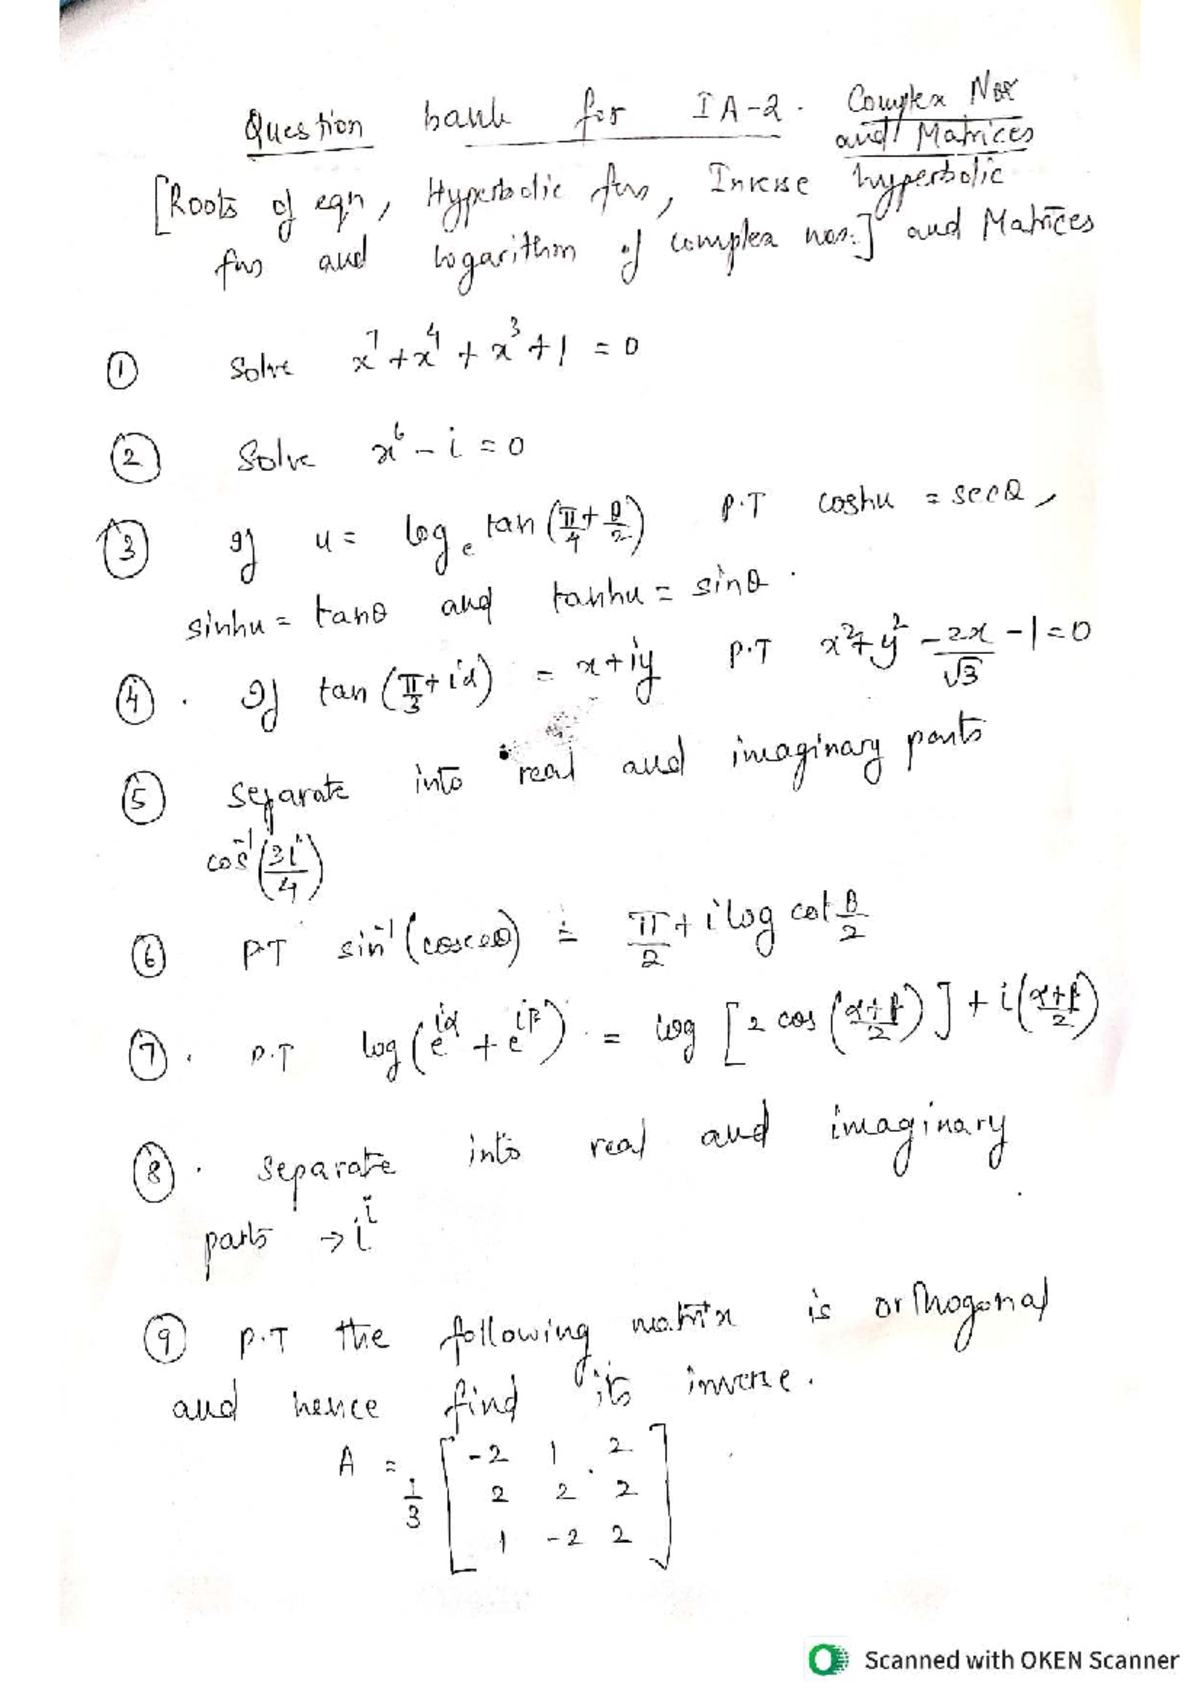 Question bank for IA-2. Complex Nos
and Matrices
[Roots of eqn, Hyperbolic fns, Inverse hyperbolic
fns and logarithm of complex nos.] and Matrices
① Solve x⁷+x⁴+x³+1=0
② Solve x⁶-i=0
③ If u= logₑ tan (π/4+θ/2) P.T coshu = secθ,
sinhu = tanθ and tanhu = sinθ.
④. If tan (π/3+iα) = x+iy P.T x²+y²-2x/√3-1=0
⑤ Separate into real and imaginary parts
cos⁻¹(3i/4)
⑥ P.T sin⁻¹(cosecθ) = π/2+ilog cot θ/2
⑦. P.T log(e^iα+e^iβ) = log [2 cos (α+β/2)]+i(α+β/2)
⑧. Separate into real and imaginary
parts → i^i
⑨ P.T the following matrix is orthogonal
and hence find its inverse.
A = 1/3 [-2 1 2
2 2 2
1 -2 2]
Scanned with OKEN Scanner